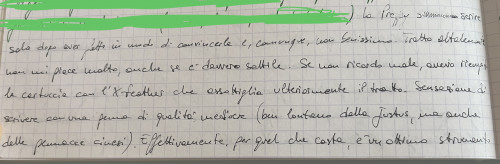 ) la Prefyy scrive
solo dopo aver fatto in modo di convincerla e, comunque, non benissimo. Tratto altalenante
non mi piace molto, anche se è davvero sottile. Se non ricordo male, avevo riemp
la cartuccia con l'X-feather che assottiglia ulteriormente il tratto. Sensazione di
scrivere con una penna di qualità mediocre (ben lontana dalla Justus, ma anche
dalle pennacce cinesi). Effettivamente, per quel che costa, è un ottimo strumento